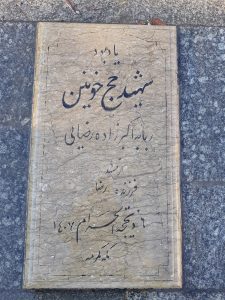 یادبود
شهید حج خونین
ربابه اکبرزاده رضایی
فرزند
رضا
۶ ذیحجه الحرام ۱۴۰۷
مکه مکرمه